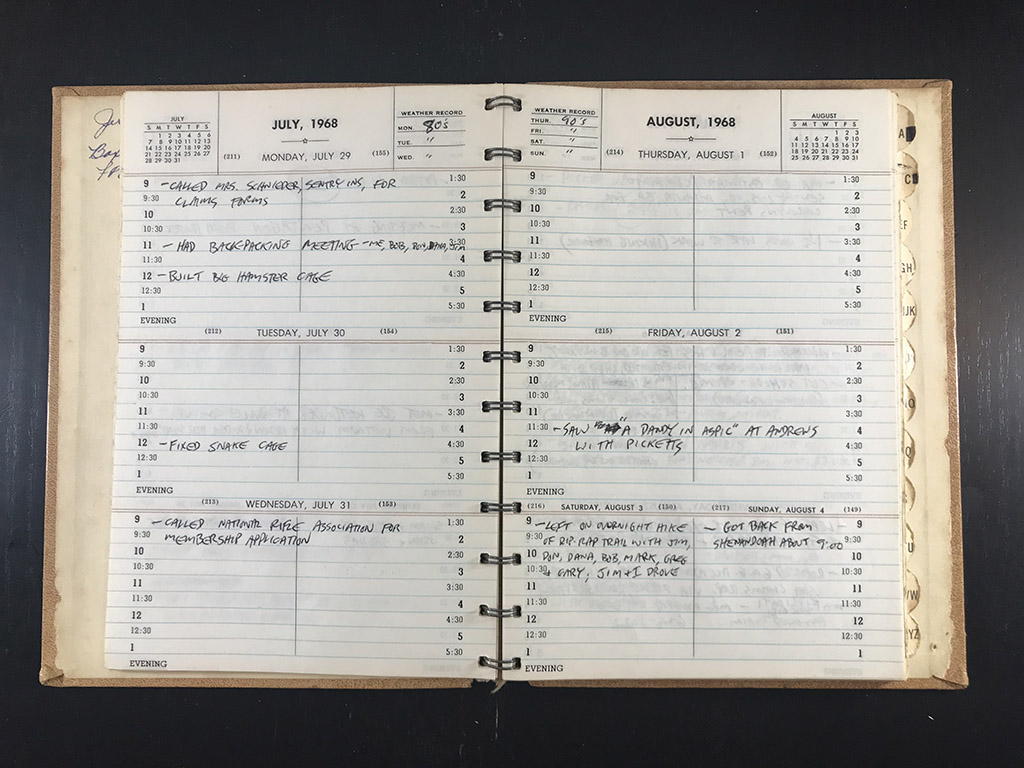 JULY
S M T W T F S
1 2 3 4 5 6
7 8 9 10 11 12 13
14 15 16 17 18 19 20
21 22 23 24 25 26 27
28 29 30 31
JULY, 1968
WEATHER RECORD
MON. 80's
TUE. "
WED. "
(211) MONDAY, JULY 29 (155)
9 - CALLED MRS. SCHNIEDER, SENTRY INS, FOR 1:30
9:30 CLAIMS FORMS 2
10 2:30
10:30 3
11 - HAD BACK-PACKING MEETING - ME, BOB, DON, DANA, JIM 3:30
11:30 4
12 - BUILT BIG HAMSTER CAGE 4:30
12:30 5
1 5:30
EVENING
(212) TUESDAY, JULY 30 (154)
9 1:30
9:30 2
10 2:30
10:30 3
11 3:30
11:30 4
12 - FIXED SNAKE CAGE 4:30
12:30 5
1 5:30
EVENING
(213) WEDNESDAY, JULY 31 (153)
9 - CALLED NATIONAL RIFLE ASSOCIATION FOR 1:30
9:30 MEMBERSHIP APPLICATION 2
10 2:30
10:30 3
11 3:30
11:30 4
12 4:30
12:30 5
1 5:30
EVENING
WEATHER RECORD
THUR. 90's
FRI. "
SAT. "
SUN. "
AUGUST, 1968
AUGUST
S M T W T F S
1 2 3
4 5 6 7 8 9 10
11 12 13 14 15 16 17
18 19 20 21 22 23 24
25 26 27 28 29 30 31
(214) THURSDAY, AUGUST 1 (152)
9 1:30
9:30 2
10 2:30
10:30 3
11 3:30
11:30 4
12 4:30
12:30 5
1 5:30
EVENING
(215) FRIDAY, AUGUST 2 (151)
9 1:30
9:30 2
10 2:30
10:30 3
11 3:30
11:30 - SAW "A DANDY IN ASPIC" AT ANDREWS 4
12 WITH PICKETTS 4:30
12:30 5
1 5:30
EVENING
(216) SATURDAY, AUGUST 3 (150) (217) SUNDAY, AUGUST 4 (149)
9 - LEFT ON OVERNIGHT HIKE - GOT BACK FROM 9
9:30 OF RIP-RAP TRAIL WITH JIM, SHENANDOAH ABOUT 9:00 9:30
10 DON, DANA, BOB, MARK, GREG 10
10:30 + GARY; JIM + I DROVE 10:30
11 11
11:30 11:30
12 12
12:30 12:30
1 1
EVENING
A
C
EF
GH
IJK
U
VW
YZ